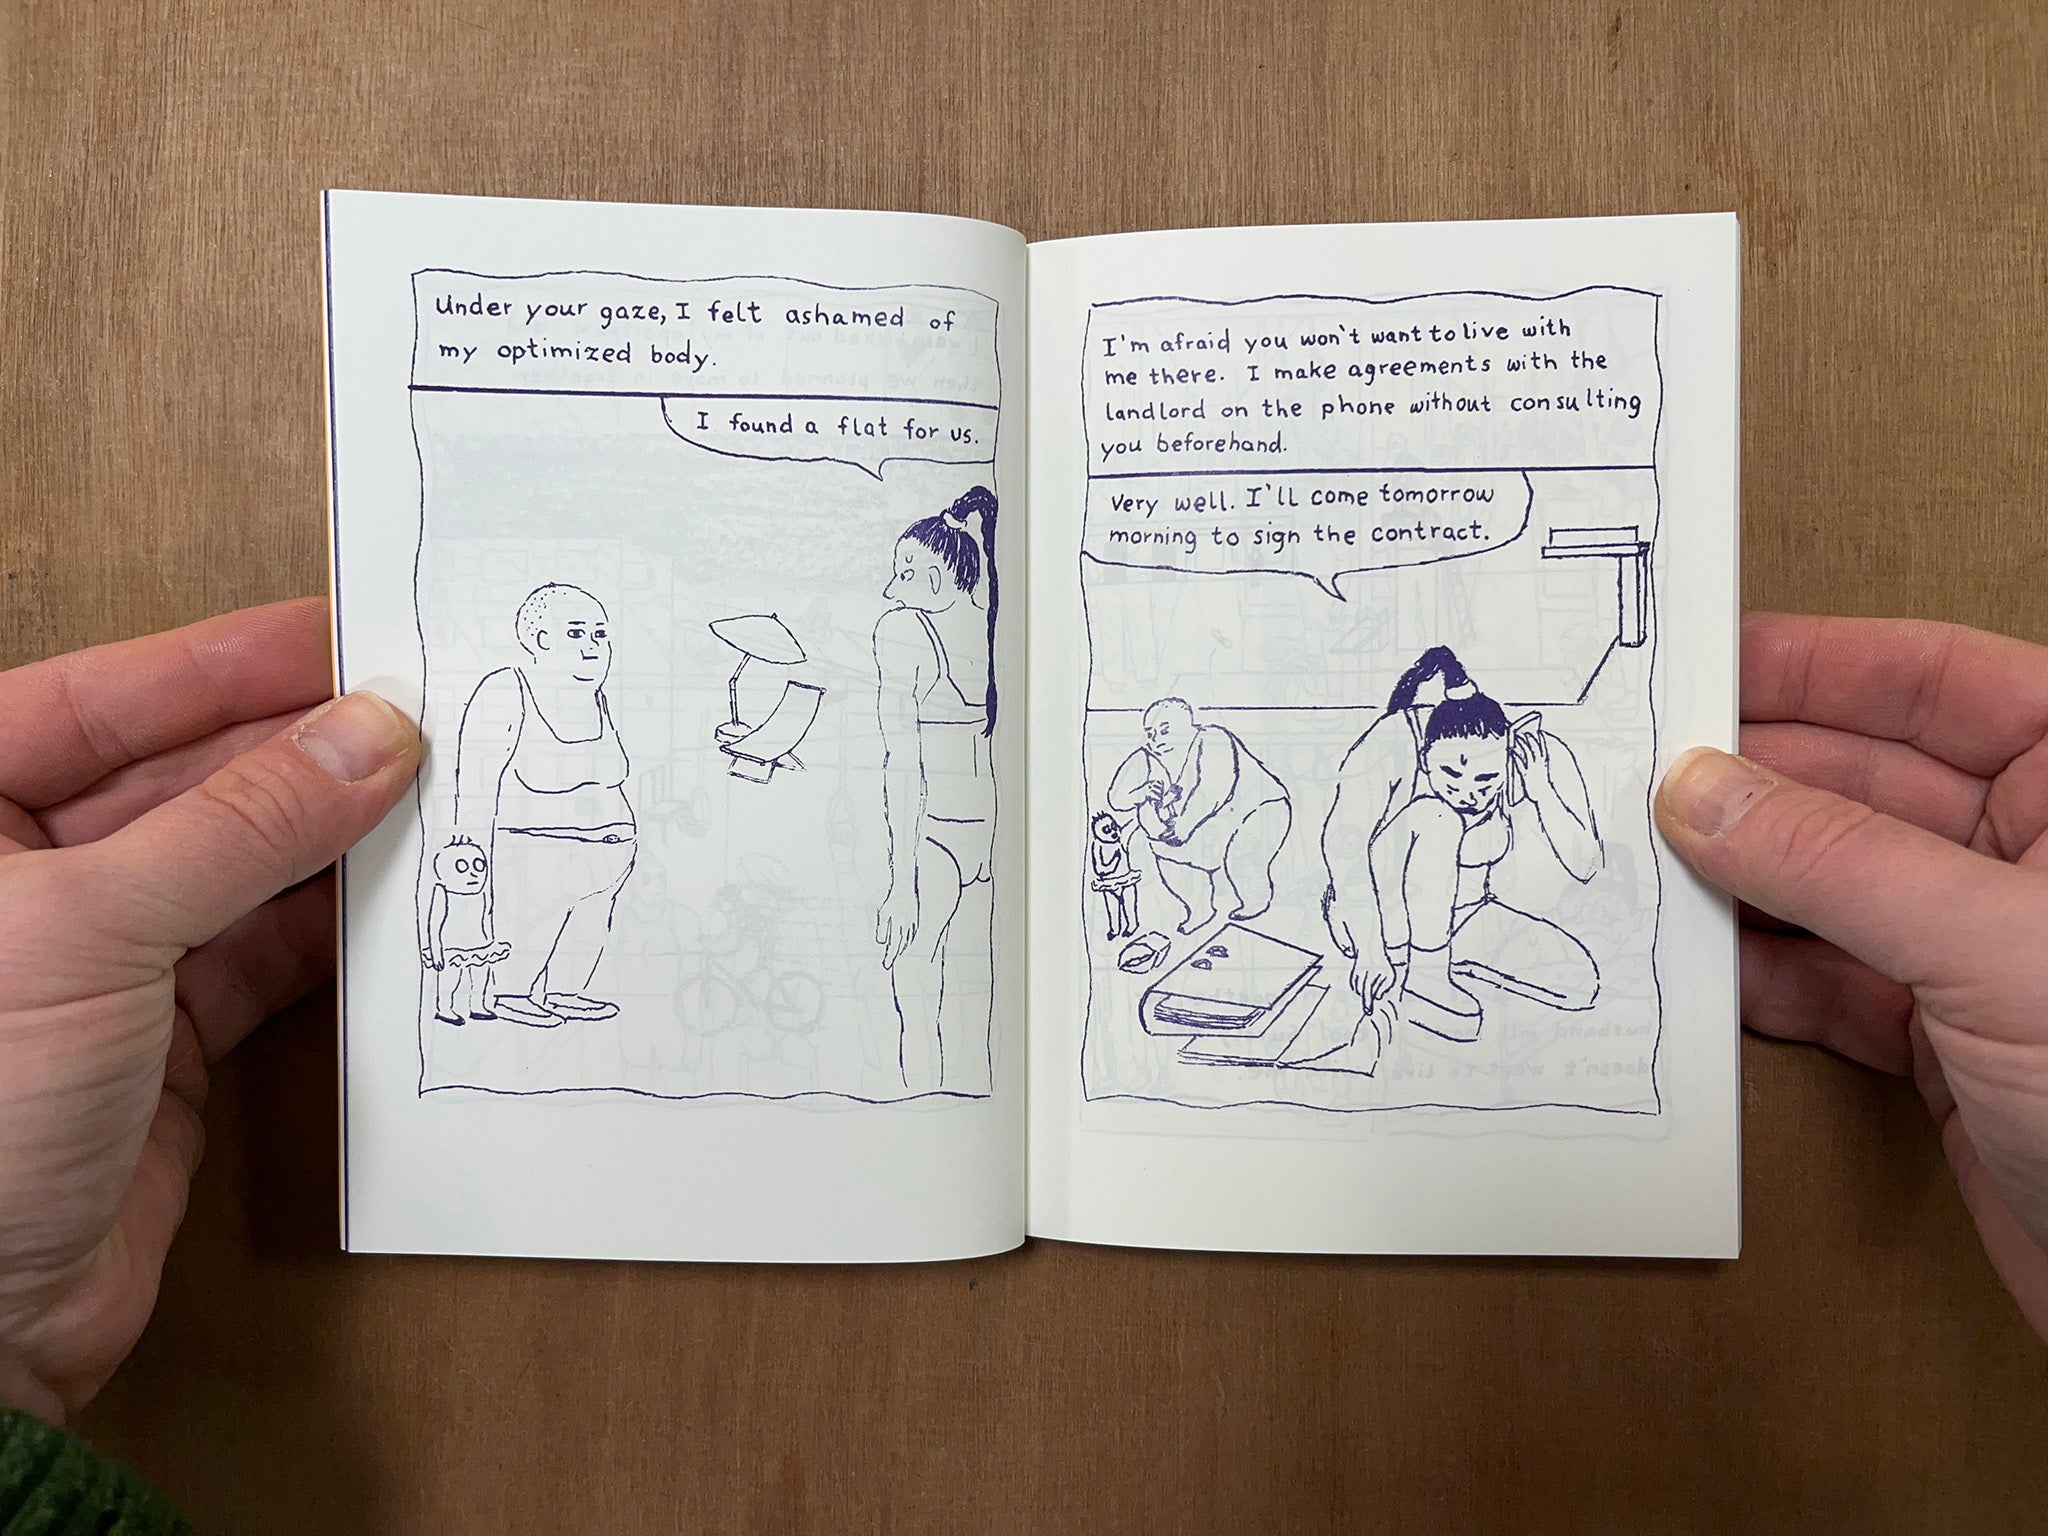 Under your gaze, I felt ashamed of
my optimized body.
I found a flat for us.
I'm afraid you won't want to live with
me there. I make agreements with the
landlord on the phone without consulting
you beforehand.
Very well. I'll come tomorrow
morning to sign the contract.